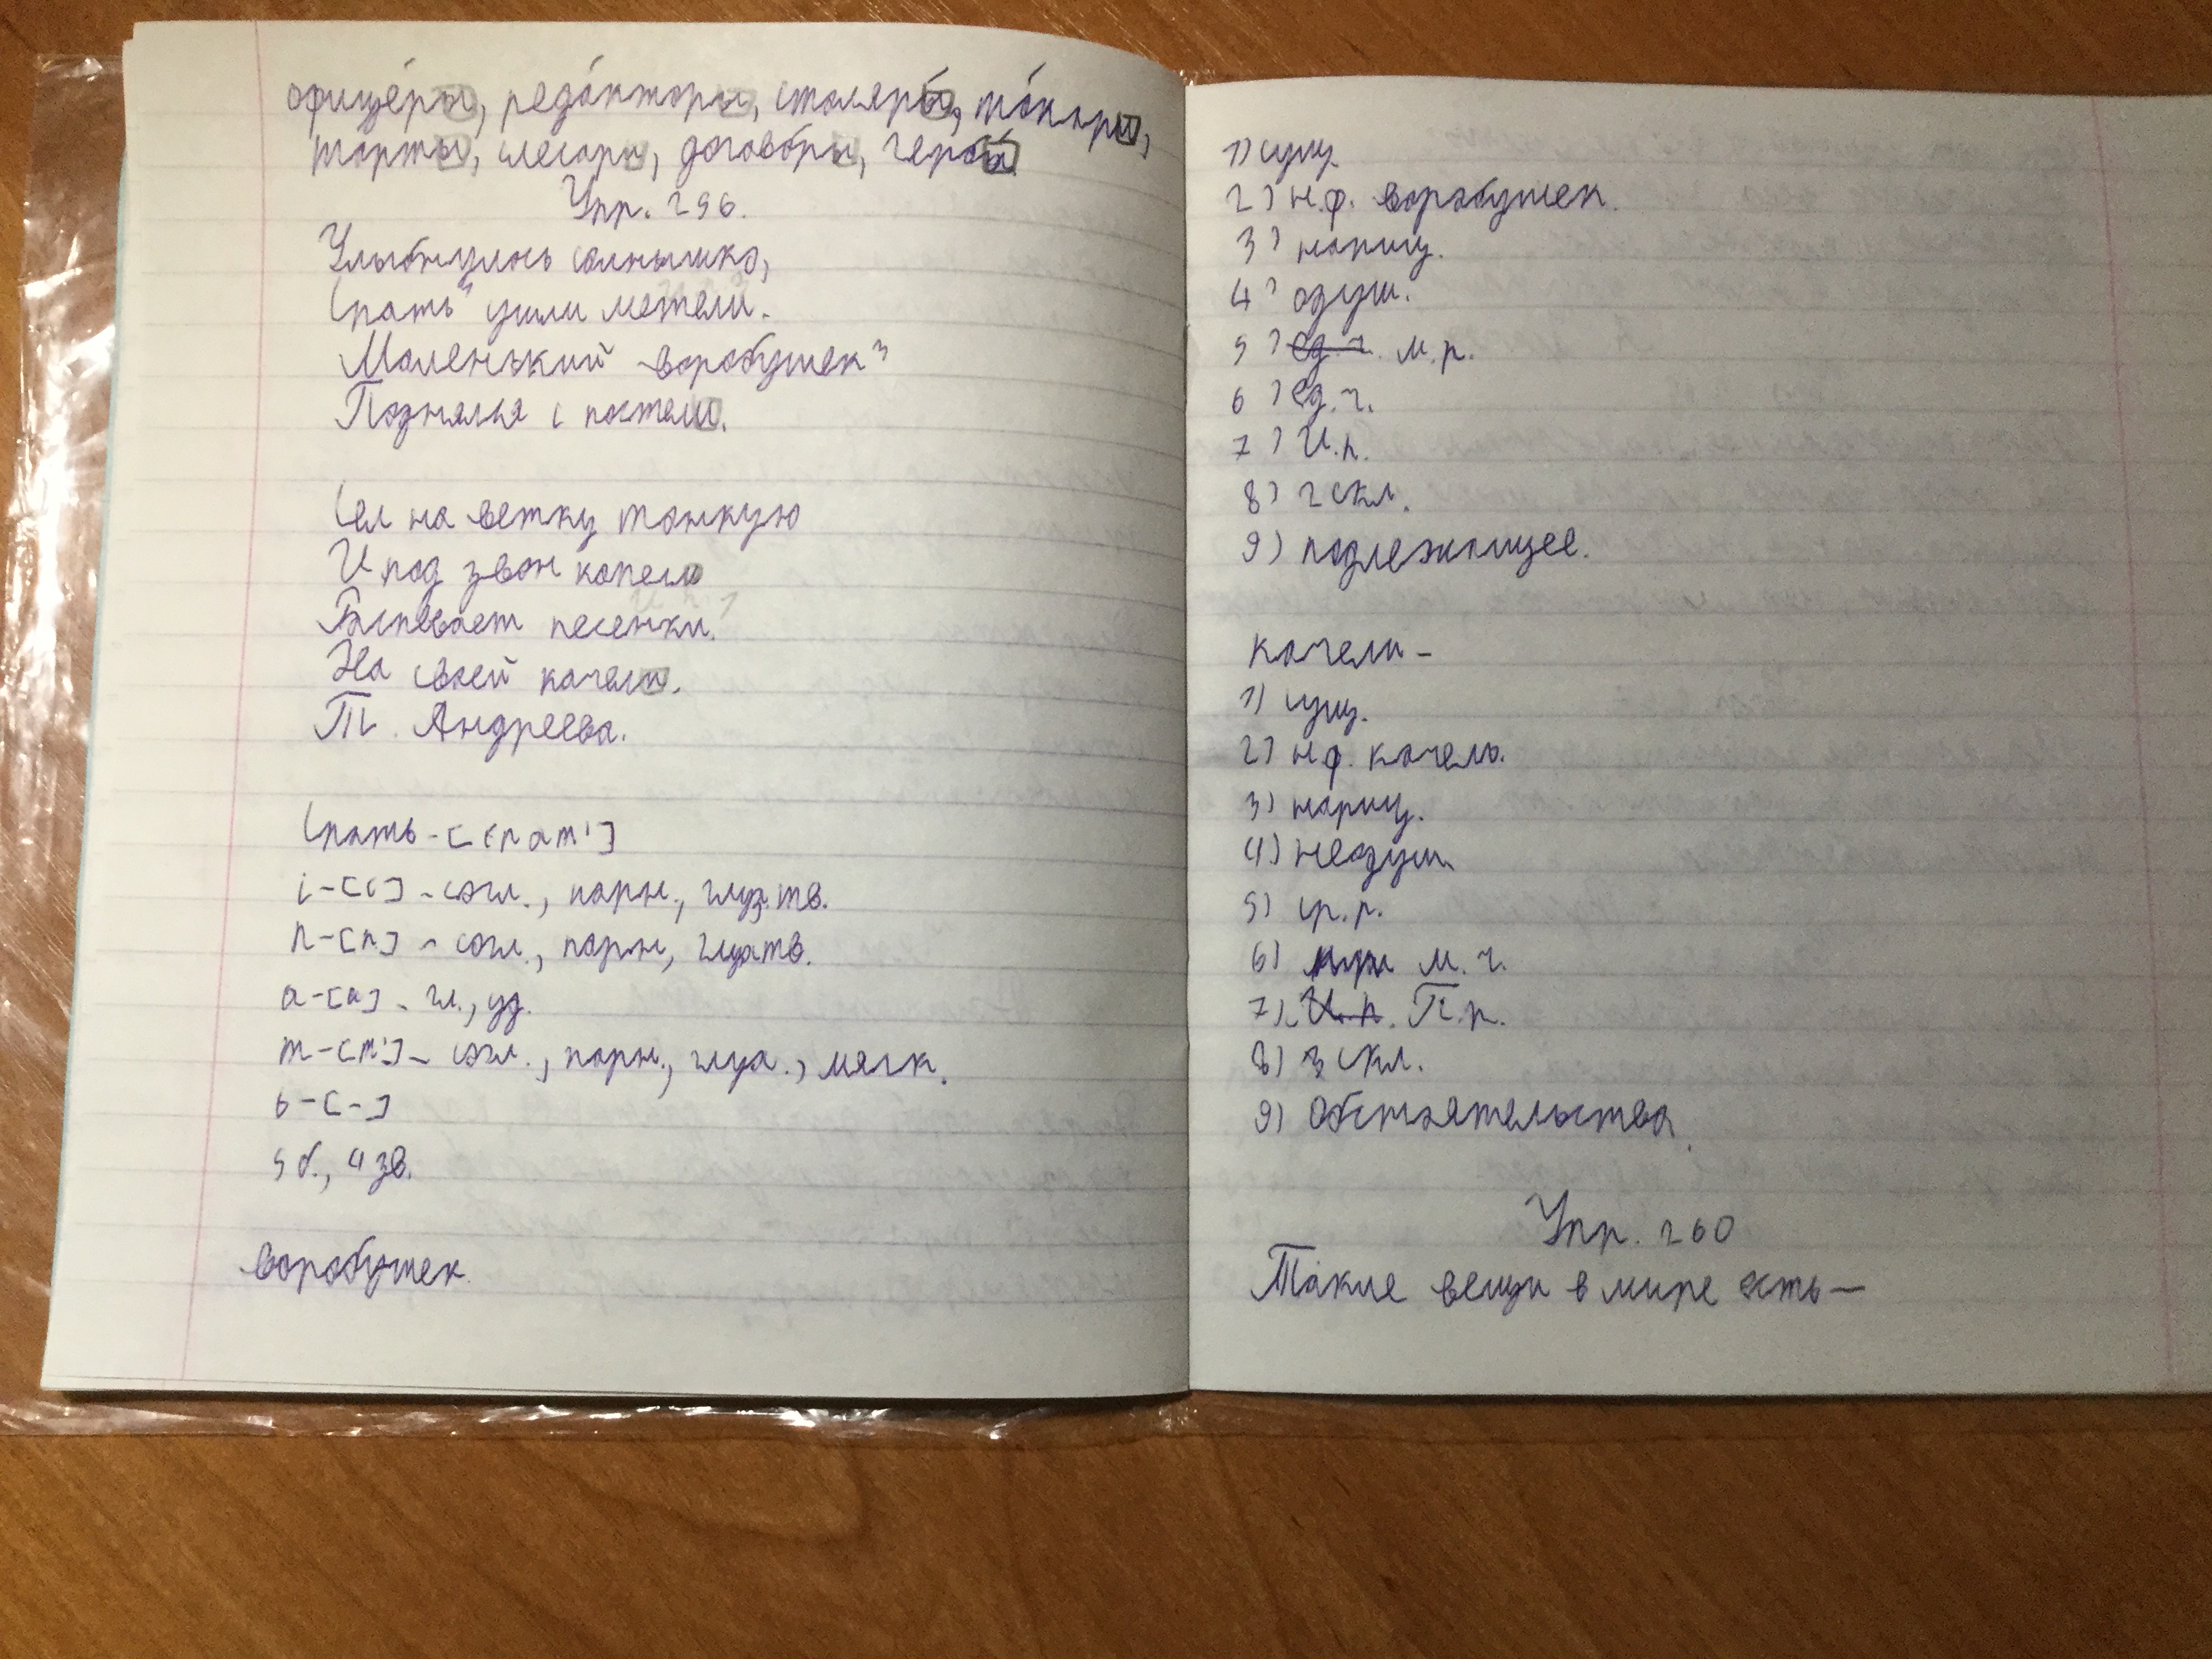 офице́ры, реда́кторы, столяры́, то́кари,
торты, слесари, догово́ры, гербы́
Упр. 256.
Улыбнулось солнышко,
Спать³ ушли метели.
Маленький воробушек³
Поднялся с постели.
Сел на ветку тонкую
И под звон капели
Распевает песенки.
На своей качели.
Т. Андреева.
Спать - [спат']
с - [с] - согл., парн., глух. тв.
п - [п] - согл., парн, глух тв.
а - [а] - гл., уд.
т - [т'] - согл., парн., глух., мягк.
ь - [-]
5 б., 4 зв.
воробушек.
1) сущ.
2) н.ф. воробушек.
3) нариц.
4) одуш.
5) ед. ч. м.р.
6) ед. ч.
7) И.п.
8) 2 скл.
9) подлежащее.
качели -
1) сущ.
2) н.ф. качель.
3) нариц.
4) неодуш.
5) ср. р.
6) м. ч.
7) И. п. П.п.
8) 3 скл.
9) Обстоятельства.
Упр. 260
Такие вещи в мире есть —